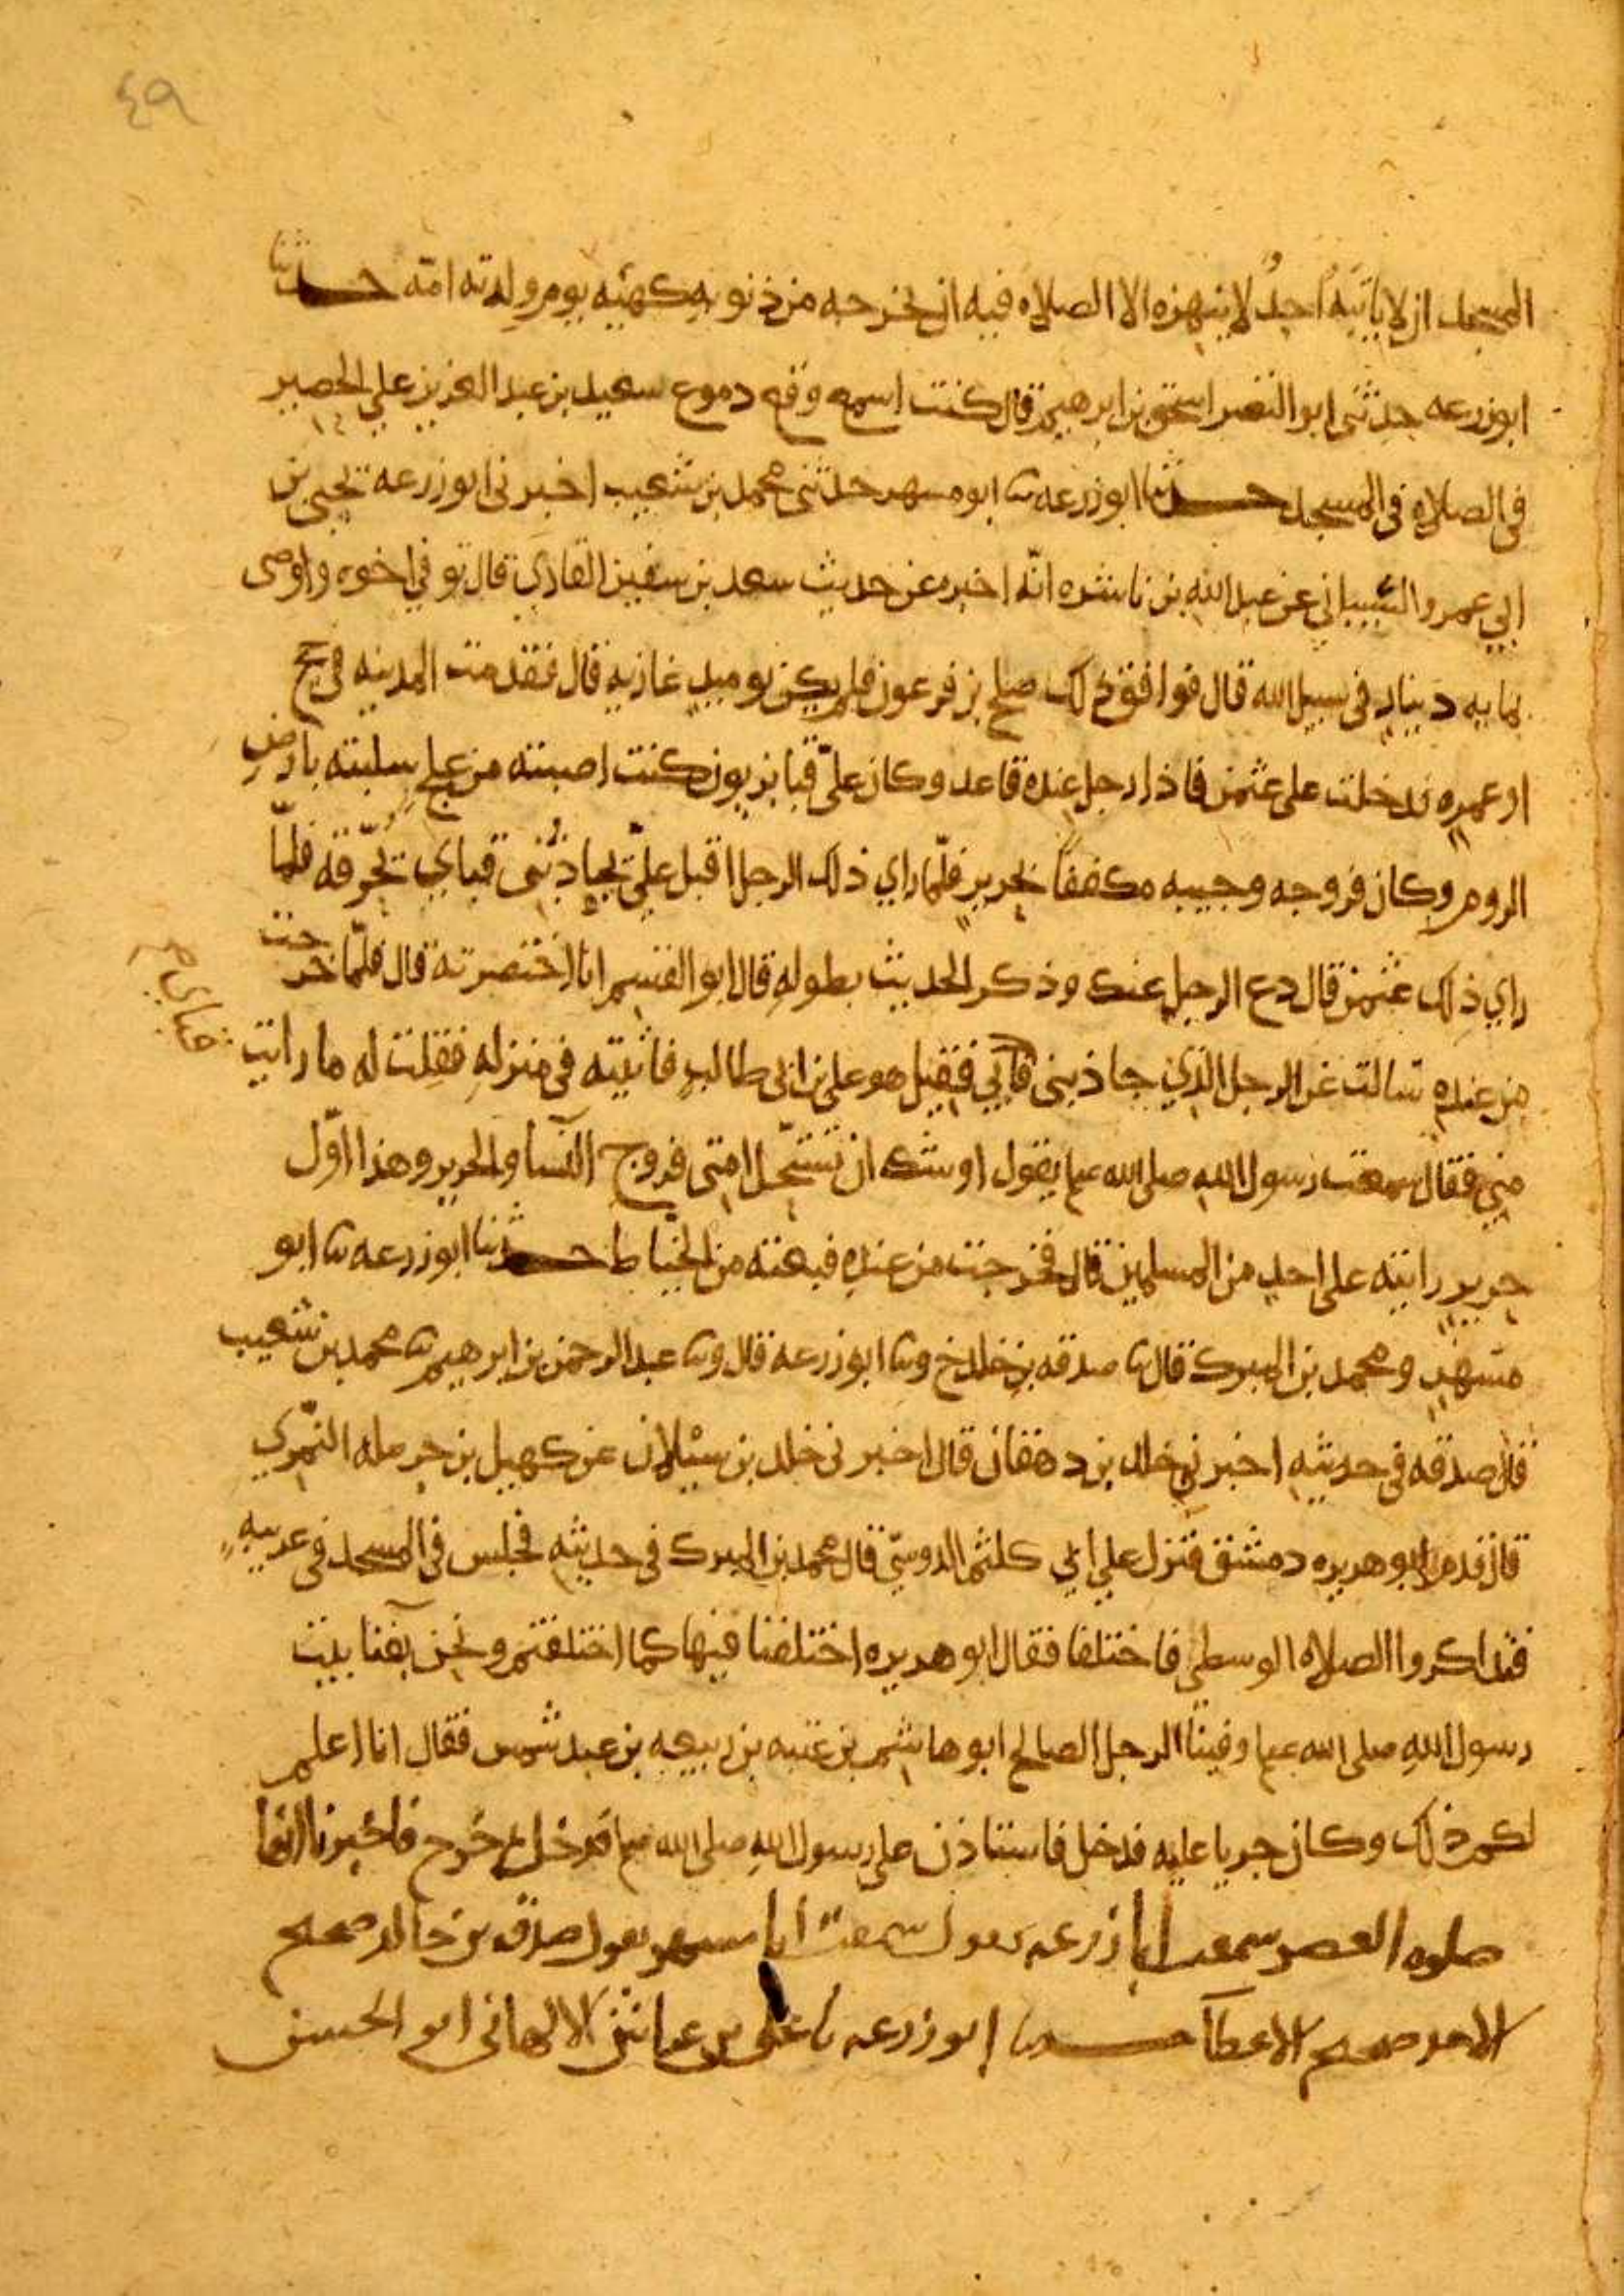 ٤٩
المسجد ان لا ياتيه احد لا ينهزه الا الصلاه فيه ان يخرجه من ذنوبه كهيئه يوم ولدته امه حدثنا
ابو زرعه حدثني ابو النضر اسحق بن ابرهيم قال كنت اسمع وقع دموع سعيد بن عبد العزيز علي الحصير
في الصلاه في المسجد حدثنا ابو زرعه نا ابو مسهر حدثني محمد بن شعيب اخبرني ابو زرعه يحيى بن
ابي عمرو الشيباني عن عبد الله بن ناشره انه اخبره عن حديث سعد بن سفين القاري قال توفي اخوه واوصى
بمايه دينار في سبيل الله قال فوافق ذلك صلح بن فرعون فلم يكن يوميد غازيه قال فقدمت المدينه في حج
او عمره فدخلت على عثمن فاذا رجل عنده قاعد وكان علي قبا بزيون كنت اصبته من علج سلبته بارض
الروم وكان فروجه وجيبه مكففا بحرير فلما راي ذلك الرجل اقبل علي يجاذبني قباي يخرقه فلما
راي ذلك عثمن قال دع الرجل عنك وذكر الحديث بطوله قال ابو القسم انا اختصرته قال فلما خرجت
من عنده سالت عن الرجل الذي جاذبني قباي فقيل هو علي بن ابي طالب فاتيته في منزله فقلت له ما رايت
مني فقال سمعت رسول الله صلى الله عليه يقول اوشك ان تستحل امتي فروج النسا والحرير وهذا اول
حرير رايته على احد من المسلمين قال فخرجت من عنده فبعته من الخياط حدثنا ابو زرعه نا ابو
مسهر ومحمد بن المبرك قال نا صدقه بن خلد خ ونا ابو زرعه قال ونا عبد الرحمن بن ابرهيم نا محمد بن شعيب
قال صدقه في حديثه اخبرني خلد بن دهقان قال اخبرني خلد بن سبلان عن كهيل بن حرمله النمري
قال قدم ابو هريره دمشق فنزل علي ابي كلثم الدوسي قال محمد بن المبرك في حديثه فجلس في المسجد في غربيه
فتذاكروا الصلاه الوسطى فاختلفا فقال ابو هريره اختلفنا فيها كما اختلفتم ونحن بفنا بيت
رسول الله صلى الله عليه وفينا الرجل الصالح ابو هاشم بن عتبه بن ربيعه بن عبد شمس فقال انا اعلم
لكم ذلك وكان جريا عليه فدخل فاستاذن على رسول الله صلى الله عليه فدخل ثم خرج فاخبرنا انها
صلوه العصر سمعت ابا زرعه يقول سمعت ابا مسهر يقول صدقه بن خالد صحيح
الاخذ صحيح الاعطا حدثنا ابو زرعه نا علي بن عياش الالهاني ابو الحسن